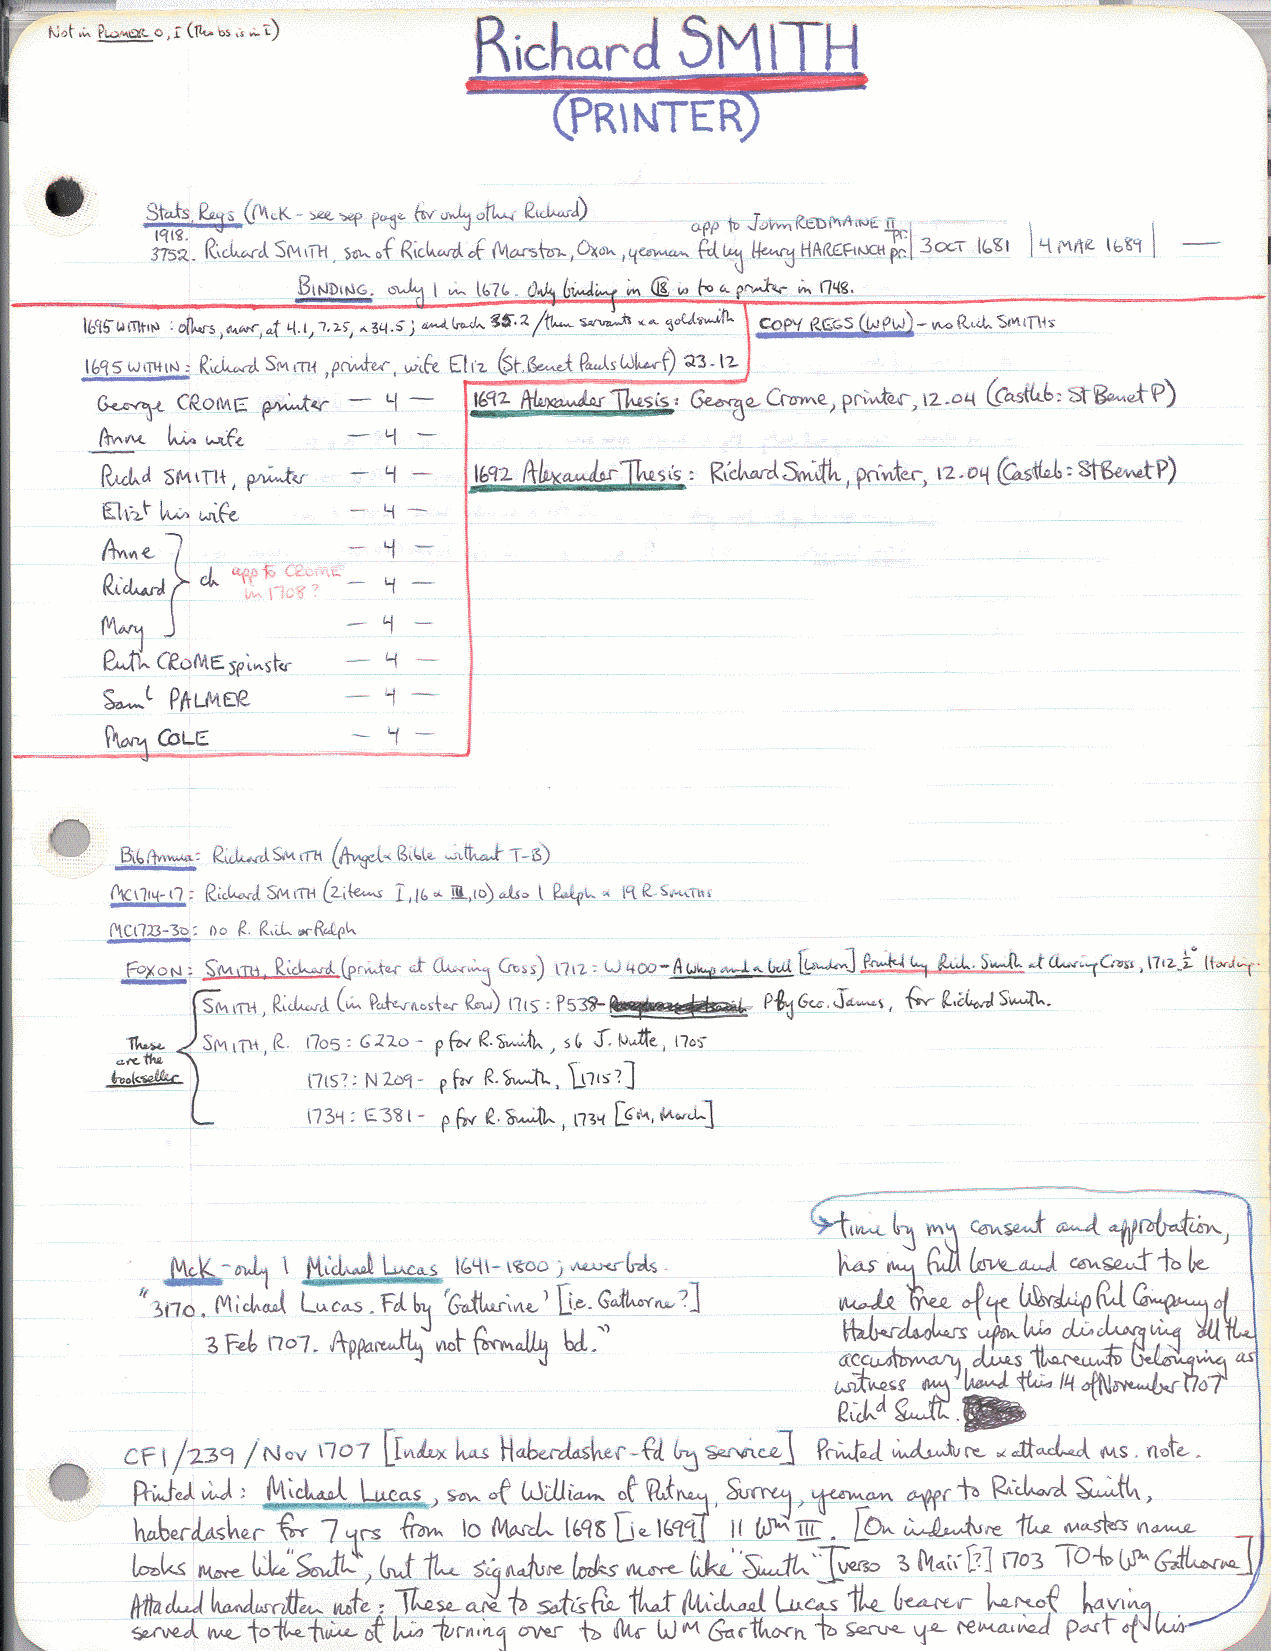 Not in PLOMER O, I (This bs is in I)
Richard SMITH
(PRINTER)
Stats. Regs (McK - see sep page for only other Richard)
app to John REDMAINE II pr.
1918.
3752. Richard SMITH, son of Richard of Marston, Oxon, yeoman fd by Henry HAREFINCH pr. | 3 OCT 1681 | 4 MAR 1689 | —
BINDING. only 1 in 1676. Only binding in 18 is to a printer in 1748.
1695 WITHIN: others, marr, at 4.1, 7.25, & 34.5; and bach 35.2 / then servants & a goldsmith
COPY REGS (WPW) - no Rich SMITHs
1695 WITHIN: Richard SMITH, printer, wife Eliz (St. Benet Pauls Wharf) 23.12
George CROME printer — 4 —
1692 Alexander Thesis: George Crome, printer, 12.04 (Castleb: St Benet P)
Anne his wife — 4 —
Richd SMITH, printer — 4 —
1692 Alexander Thesis: Richard Smith, printer, 12.04 (Castleb: St Benet P)
Elizt his wife — 4 —
Anne — 4 —
Richard } ch app to CROME in 1708? — 4 —
Mary — 4 —
Ruth CROME spinster — 4 —
Saml PALMER — 4 —
Mary COLE — 4 —
Bib Annua: Richard SMITH (Angel & Bible without T-B)
MC1714-17: Richard SMITH (2 items I, 16 & III, 10) also 1 Ralph & 19 R. SMITHs
MC1723-30: no R. Rich or Ralph
FOXON: SMITH, Richard (printer at Charing Cross) 1712: W400 - A whip and a bell [London] Printed by Rich. Smith at Charing Cross, 1712. ½° Harding.
SMITH, Richard (in Paternoster Row) 1715: P538- P by Geo. James, for Richard Smith.
These are the bookseller
SMITH, R. 1705: G220 - p for R. Smith, sb J. Nutte, 1705
1715?: N209 - p for R. Smith, [1715?]
1734: E381 - p for R. Smith, 1734 [GM, March]
McK - only 1 Michael Lucas 1641-1800; never bds.
"3170. Michael Lucas. Fd by 'Gatherine' [i.e. Gathorne?]
3 Feb 1707. Apparently not formally bd."
CF1/239/Nov 1707 [Index has Haberdasher - fd by service] Printed indenture & attached ms. note.
Printed ind: Michael Lucas, son of William of Putney, Surrey, yeoman appr to Richard Smith,
haberdasher for 7 yrs from 10 March 1698 [ie 1699] 11 Wm III. [On indenture the masters name
looks more like "South", but the signature looks more like "Smith"] [verso 3 Mair [?] 1703 TO to Wm Gathorne]
Attached handwritten note: These are to satisfie that Michael Lucas the bearer hereof having
served me to the time of his turning over to Mr Wm Garthorn to serve ye remained part of his
time by my consent and approbation,
has my full love and consent to be
made free of ye Worshipful Company of
Haberdashers upon his discharging all the
accustomary dues thereunto belonging as
witness my hand this 14 of November 1707
Richd Smith.